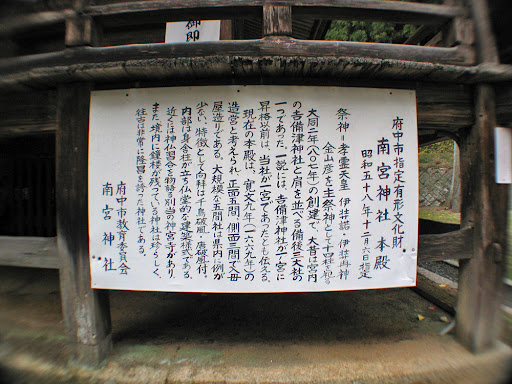 御即
府中市指定有形文化財
南宮神社 本殿
昭和五十八年十二月六日指定
祭神=孝霊天皇 伊弉諾・伊弉冉神
金山彦を主祭神として四柱を祀る
大同二年(八〇七年)の創建で、大昔は宮内
の吉備津神社と肩を並べる備後三大社の
一つであった。一説には、吉備津神社が一宮に
昇格以前は、当社が一宮であったとも伝える。
現在の本殿は、寛文九年(一六六九年)の
造営と考えられ、正面五間、側面三間で入母
屋造りである。大規模な五間社は県内に例が
少ない。特徴として向拝は千鳥破風、唐破風付、
内部は身舎柱が立つ仏堂的な建築様式である。
近くには神仏習合を物語る別当の神宮寺があり
また境内に鐘楼が残っている神社はめずらしく、
往古は非常に隆昌を誇った神社である。
府中市教育委員会
南宮神社